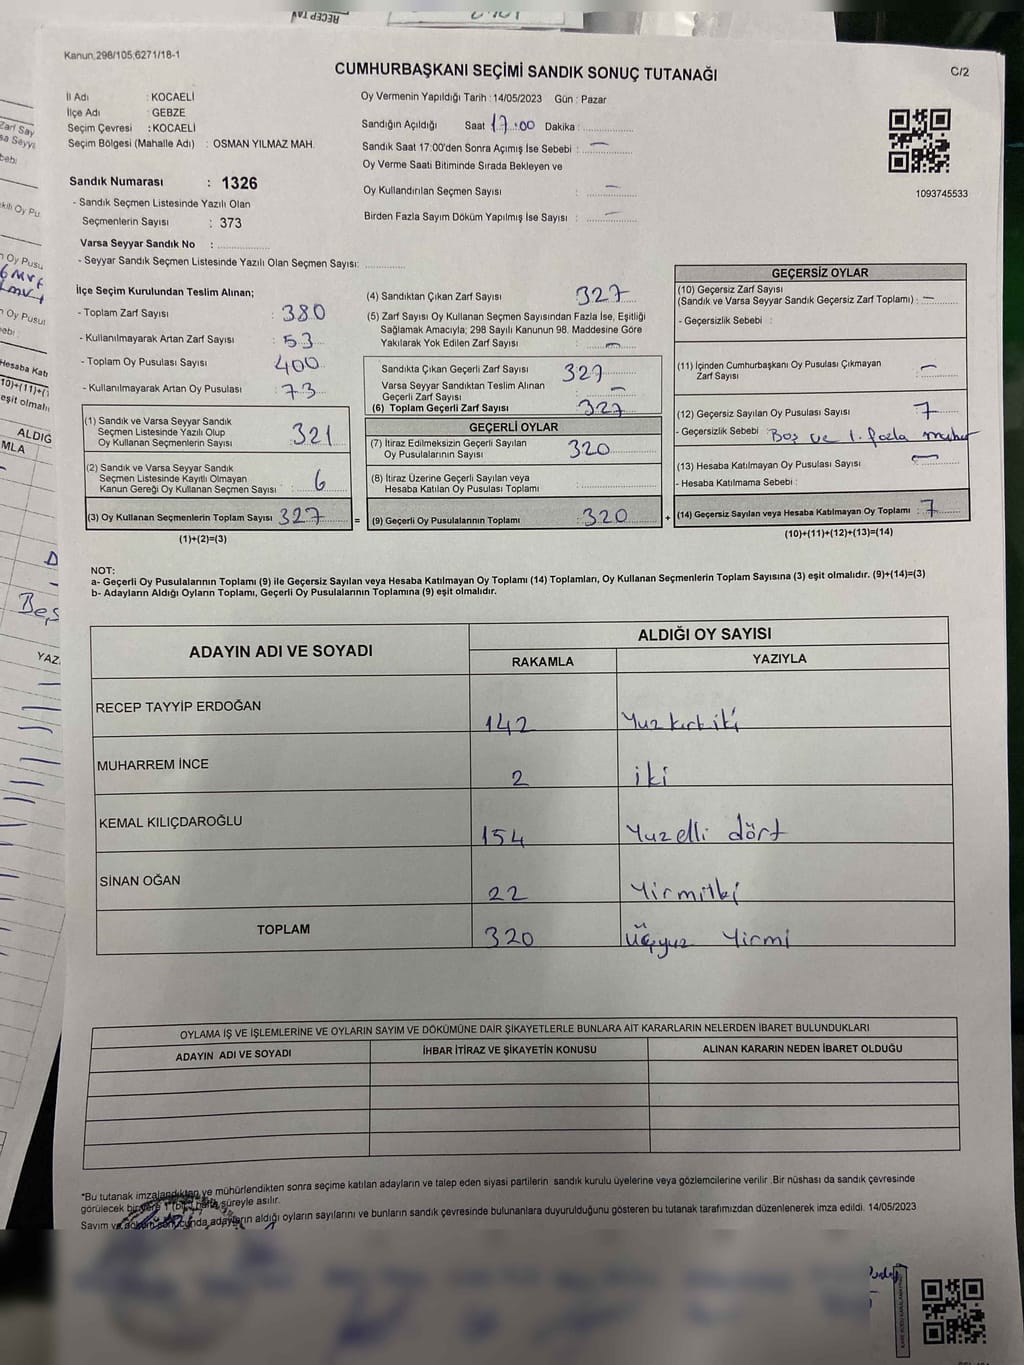 RECEP TAY
Kanun,298/105,6271/18-1
CUMHURBAŞKANI SEÇİMİ SANDIK SONUÇ TUTANAĞI
C/2
İl Adı : KOCAELİ
İlçe Adı : GEBZE
Seçim Çevresi : KOCAELİ
Seçim Bölgesi (Mahalle Adı) : OSMAN YILMAZ MAH.
Sandık Numarası : 1326
- Sandık Seçmen Listesinde Yazılı Olan
Seçmenlerin Sayısı : 373
Varsa Seyyar Sandık No : ................
- Seyyar Sandık Seçmen Listesinde Yazılı Olan Seçmen Sayısı: ............
Oy Vermenin Yapıldığı Tarih : 14/05/2023 Gün : Pazar
Sandığın Açıldığı Saat 17:00 Dakika : ................
Sandık Saat 17:00'den Sonra Açımış İse Sebebi : —
Oy Verme Saati Bitiminde Sırada Bekleyen ve
Oy Kullandırılan Seçmen Sayısı : —
Birden Fazla Sayım Döküm Yapılmış İse Sayısı : —
1093745533
İlçe Seçim Kurulundan Teslim Alınan;
- Toplam Zarf Sayısı : 380
- Kullanılmayarak Artan Zarf Sayısı : 53
- Toplam Oy Pusulası Sayısı : 400
- Kullanılmayarak Artan Oy Pusulası : 73
(1) Sandık ve Varsa Seyyar Sandık
Seçmen Listesinde Yazılı Olup
Oy Kullanan Seçmenlerin Sayısı : 321
(2) Sandık ve Varsa Seyyar Sandık
Seçmen Listesinde Kayıtlı Olmayan
Kanun Gereği Oy Kullanan Seçmen Sayısı : 6
(3) Oy Kullanan Seçmenlerin Toplam Sayısı : 327
(1)+(2)=(3)
(4) Sandıktan Çıkan Zarf Sayısı : 327
(5) Zarf Sayısı Oy Kullanan Seçmen Sayısından Fazla İse, Eşitliği
Sağlamak Amacıyla; 298 Sayılı Kanunun 98. Maddesine Göre
Yakılarak Yok Edilen Zarf Sayısı : —
Sandıkta Çıkan Geçerli Zarf Sayısı : 327
Varsa Seyyar Sandıktan Teslim Alınan
Geçerli Zarf Sayısı : —
(6) Toplam Geçerli Zarf Sayısı : 327
=
GEÇERLİ OYLAR
(7) İtiraz Edilmeksizin Geçerli Sayılan
Oy Pusulalarının Sayısı : 320
(8) İtiraz Üzerine Geçerli Sayılan veya
Hesaba Katılan Oy Pusulası Toplamı : ................
(9) Geçerli Oy Pusulalarının Toplamı : 320
+
GEÇERSİZ OYLAR
(10) Geçersiz Zarf Sayısı
(Sandık ve Varsa Seyyar Sandık Geçersiz Zarf Toplamı) : —
- Geçersizlik Sebebi :
(11) İçinden Cumhurbaşkanı Oy Pusulası Çıkmayan
Zarf Sayısı : —
(12) Geçersiz Sayılan Oy Pusulası Sayısı : 7
- Geçersizlik Sebebi : Boş ve 1. fazla mühür
(13) Hesaba Katılmayan Oy Pusulası Sayısı : —
- Hesaba Katılmama Sebebi :
(14) Geçersiz Sayılan veya Hesaba Katılmayan Oy Toplamı : 7
(10)+(11)+(12)+(13)=(14)
NOT:
a- Geçerli Oy Pusulalarının Toplamı (9) ile Geçersiz Sayılan veya Hesaba Katılmayan Oy Toplamı (14) Toplamları, Oy Kullanan Seçmenlerin Toplam Sayısına (3) eşit olmalıdır. (9)+(14)=(3)
b- Adayların Aldığı Oyların Toplamı, Geçerli Oy Pusulalarının Toplamına (9) eşit olmalıdır.
ADAYIN ADI VE SOYADI
ALDIĞI OY SAYISI
RAKAMLA YAZIYLA
RECEP TAYYİP ERDOĞAN 142 Yüz kırk iki
MUHARREM İNCE 2 iki
KEMAL KILIÇDAROĞLU 154 Yuzelli dört
SİNAN OĞAN 22 Yirmi iki
TOPLAM 320 Üçyuz Yirmi
OYLAMA İŞ VE İŞLEMLERİNE VE OYLARIN SAYIM VE DÖKÜMÜNE DAİR ŞİKAYETLERLE BUNLARA AİT KARARLARIN NELERDEN İBARET BULUNDUKLARI
ADAYIN ADI VE SOYADI İHBAR İTİRAZ VE ŞİKAYETİN KONUSU ALINAN KARARIN NEDEN İBARET OLDUĞU
*Bu tutanak imzalandıktan ve mühürlendikten sonra seçime katılan adayların ve talep eden siyasi partilerin sandık kurulu üyelerine veya gözlemcilerine verilir .Bir nüshası da sandık çevresinde
görülecek bir yere 1 (bir) hafta süreyle asılır.
Sayım ve döküm sonucunda adayların aldığı oyların sayılarını ve bunların sandık çevresinde bulunanlara duyurulduğunu gösteren bu tutanak tarafımızdan düzenlenerek imza edildi. 14/05/2023